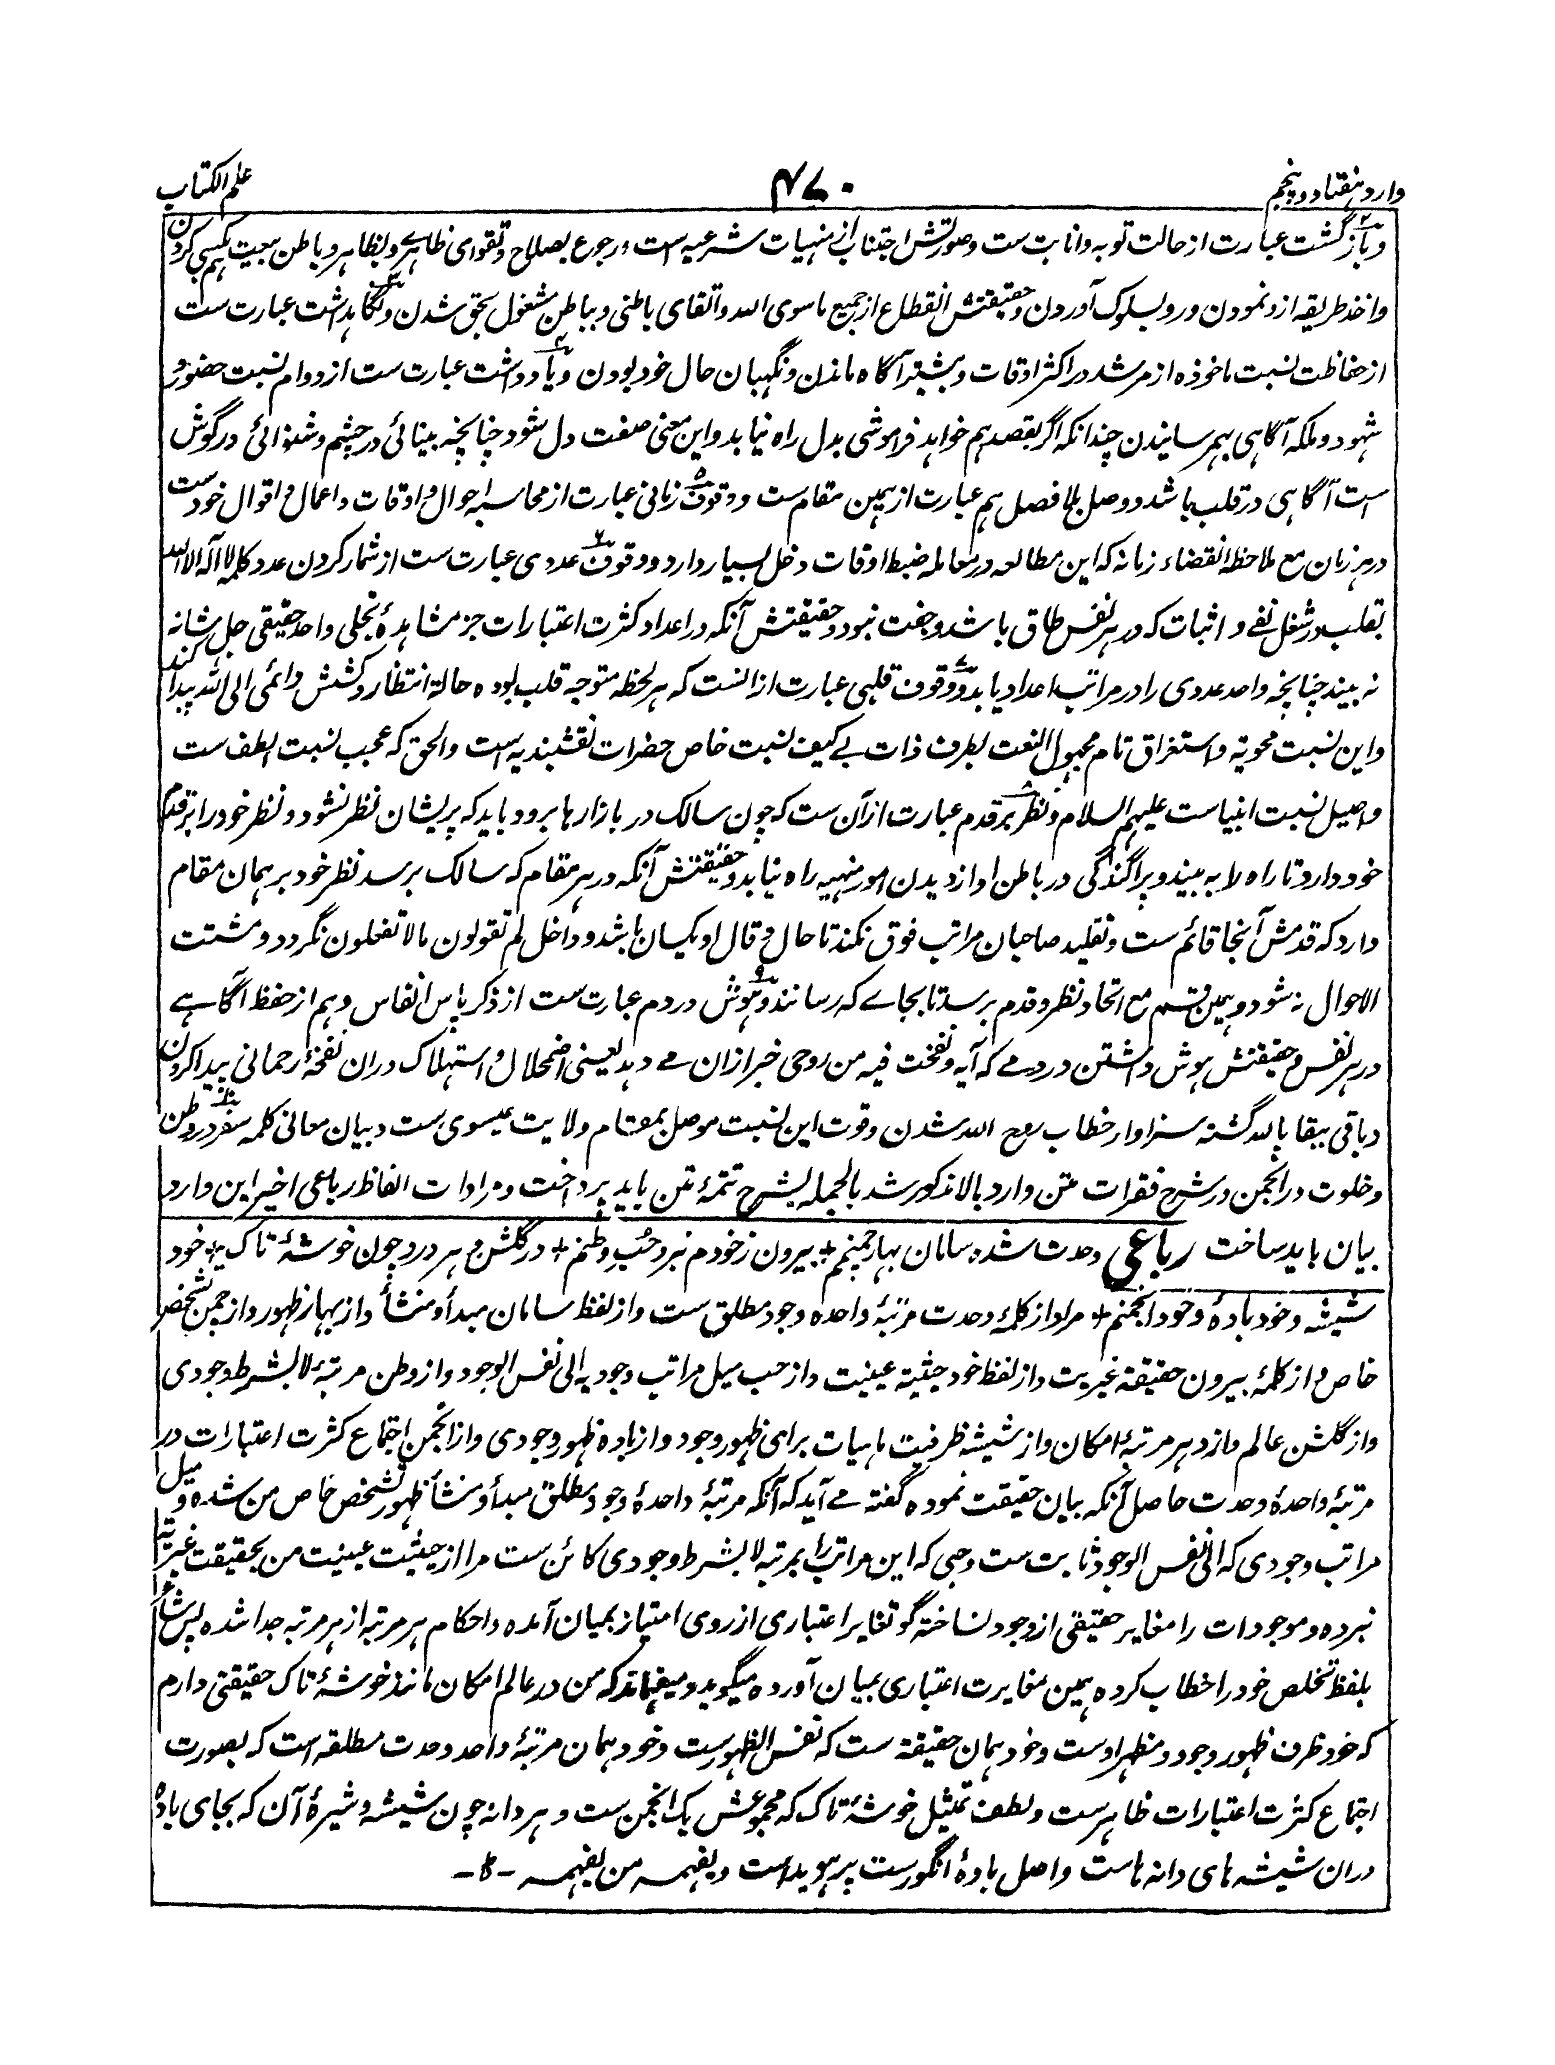 وارد هفتاد و پنجم
۴۷۰
علم الکتاب
و بازگشت عبارت از حالت توبه و انابت ست و صورتش اجتناب از منهیات شرعیه است و رجوع بصلاح و تقوای ظاهری و بظاهر و باطن بیعت بکسی کردن
و اخذ طریقه ازو نمودن و رو بسلوک آوردن و حقیقتش انقطاع از جمیع ما سوی الله و اتقای باطنی و بباطن مشغول بحق شدن و نگاهداشت عبارت ست
از حفاظت نسبت ماخوذه از مرشد در اکثر اوقات و بیشتر آگاه ماندن و نگهبان حال خود بودن و یادداشت عبارت ست از دوام نسبت حضور و
شهود و ملکه آگاهی بهم رسانیدن چندانکه اگر بقصد هم خواهد فراموشی بدل راه نیابد و این معنی صفت دل شود چنانچه بینائی در چشم و شنوائی در گوش
است آگاهی در قلب باشد و وصل بلا فصل هم عبارت از همین مقام ست و وقوف زمانی عبارت از محاسبه احوال و اوقات و اعمال و اقوال خودست
در هر زمان مع ملاحظه انقضاء زمانه که این مطالعه در معامله ضبط اوقات دخل بسیار دارد و وقوف عددی عبارت ست از شمار کردن عدد کلمه لا اله الا الله
بقلب در شغل نفی و اثبات که در هر نفس طاق باشد و جفت نبود و حقیقتش آنکه در اعداد کثرت اعتبارات جز مشاهدهٔ تجلی واحد حقیقی جل شانه
نه بیند چنانچه واحد عددی را در مراتب اعداد یابد و وقوف قلبی عبارت ازانست که هر لحظه متوجه قلب بوده حالة انتظار و کشش دائمی الی الله پیدا کند
و این نسبت محویه و استغراق تام مجهول النعت بطرف ذات بے کیف نسبت خاص حضرات نقشبندیه است و الحق که عجب نسبت الطف ست
و اصیل نسبت انبیاست علیهم السلام و نظر بر قدم عبارت از آن ست که چون سالک در بازارها برود باید که پریشان نظر نشود و نظر خود را بر قدم
خود دارد تا راه را به بیند و پراگندگی در باطن او از دیدن امور منهیه راه نیابد و حقیقتش آنکه در هر مقام که سالک برسد نظر خود بر همان مقام
دارد که قدمش آنجا قائم ست و تقلید صاحبان مراتب فوق نکند تا حال و قال او یکسان باشد و داخل لم تقولون مالا تفعلون نگردد و مشتت
الاحوال نه شود و همین قسم مع اتحاد نظر و قدم برسد تا بجاے که رسانند و هوش در دم عبارت ست از ذکر پاس انفاس و هم از حفظ آگاہے
در هر نفس و حقیقتش هوش داشتن در دمے که آیه و نفخت فیه من روحی خبر ازان مے دهد یعنی اضمحلال و استهلاک دران نفخهٔ رحمانی پیدا کردن
و باقی ببقا بالله گشته سزاوار خطاب روح الله شدن وقوت این نسبت موصل بمقام ولایت عیسوی ست و بیان معانی کلمه سفر در وطن
و خلوت در انجمن در شرح فقرات متن وارد بالا مذکور شد بالجمله بشرح تتمهٔ متن باید پرداخت و مرادات الفاظ رباعی اخیر این وارد
بیان باید ساخت رباعی وحدت شده سامان بهار چمنم + بیرون ز خودم نبرد حُبِ وطنم + در گلشن دهر درد چون خوشهٔ تاک + خود
شیشه و خود باده و خود انجمنم + مراد از کلمهٔ وحدت مرتبهٔ واحده وجود مطلق ست و از لفظ سامان مبدأ و منشأ و از بهار ظهور و از چمن تشخص
خاص و از کلمهٔ بیرون حقیقة غیریت و از لفظ خود حیثیة عینیت و از حب میل مراتب وجودیه الی نفس الوجود و از وطن مرتبهٔ لا بشرط وجودی
و از گلشن عالم و از دهر مرتبهٔ امکان و از شیشه ظرفیت ماهیات برای ظهور وجود و از باده ظهور وجودی و از انجمن اجتماع کثرت اعتبارات در
مرتبهٔ واحدهٔ وحدت حاصل آنکه بیان حقیقت نموده گفته مے آید که آنکه مرتبهٔ واحدهٔ وجود مطلق مبدأ و منشأ ظهور تشخص خاص من شده و میل
مراتب وجودی که الی نفس الوجود ثابت ست و حبی که این مراتب را بمرتبه لا بشرط وجودی کائن ست مرا از حیثیت عینیت من بحقیقت غیریة
نبرده و موجودات را مغایر حقیقی از وجود نساخته گو تغایر اعتباری از روی امتیاز بمیان آمده و احکام هر مرتبه از هر مرتبه جدا شده پس شاعر
بلفظ تخلص خود را خطاب کرده همین مغایرت اعتباری بمیان آورده میگوید و میفهماند که من در عالم امکان مانند خوشهٔ تاک حقیقتی دارم
که خود ظرف ظهور وجود و مظهر اوست و خود همان حقیقة ست که نفس الظهورست و خود همان مرتبهٔ واحد وحدت مطلقه است که بصورت
اجتماع کثرت اعتبارات ظاهرست و لطف تمثیل خوشهٔ تاک که مجموعش یک انجمن ست و هر دانه چون شیشه و شیرهٔ آن که بجای باده
دران شیشه های دانه هاست و اصل بادهٔ انگورست پر هویداست و یفهمه من یفهمه